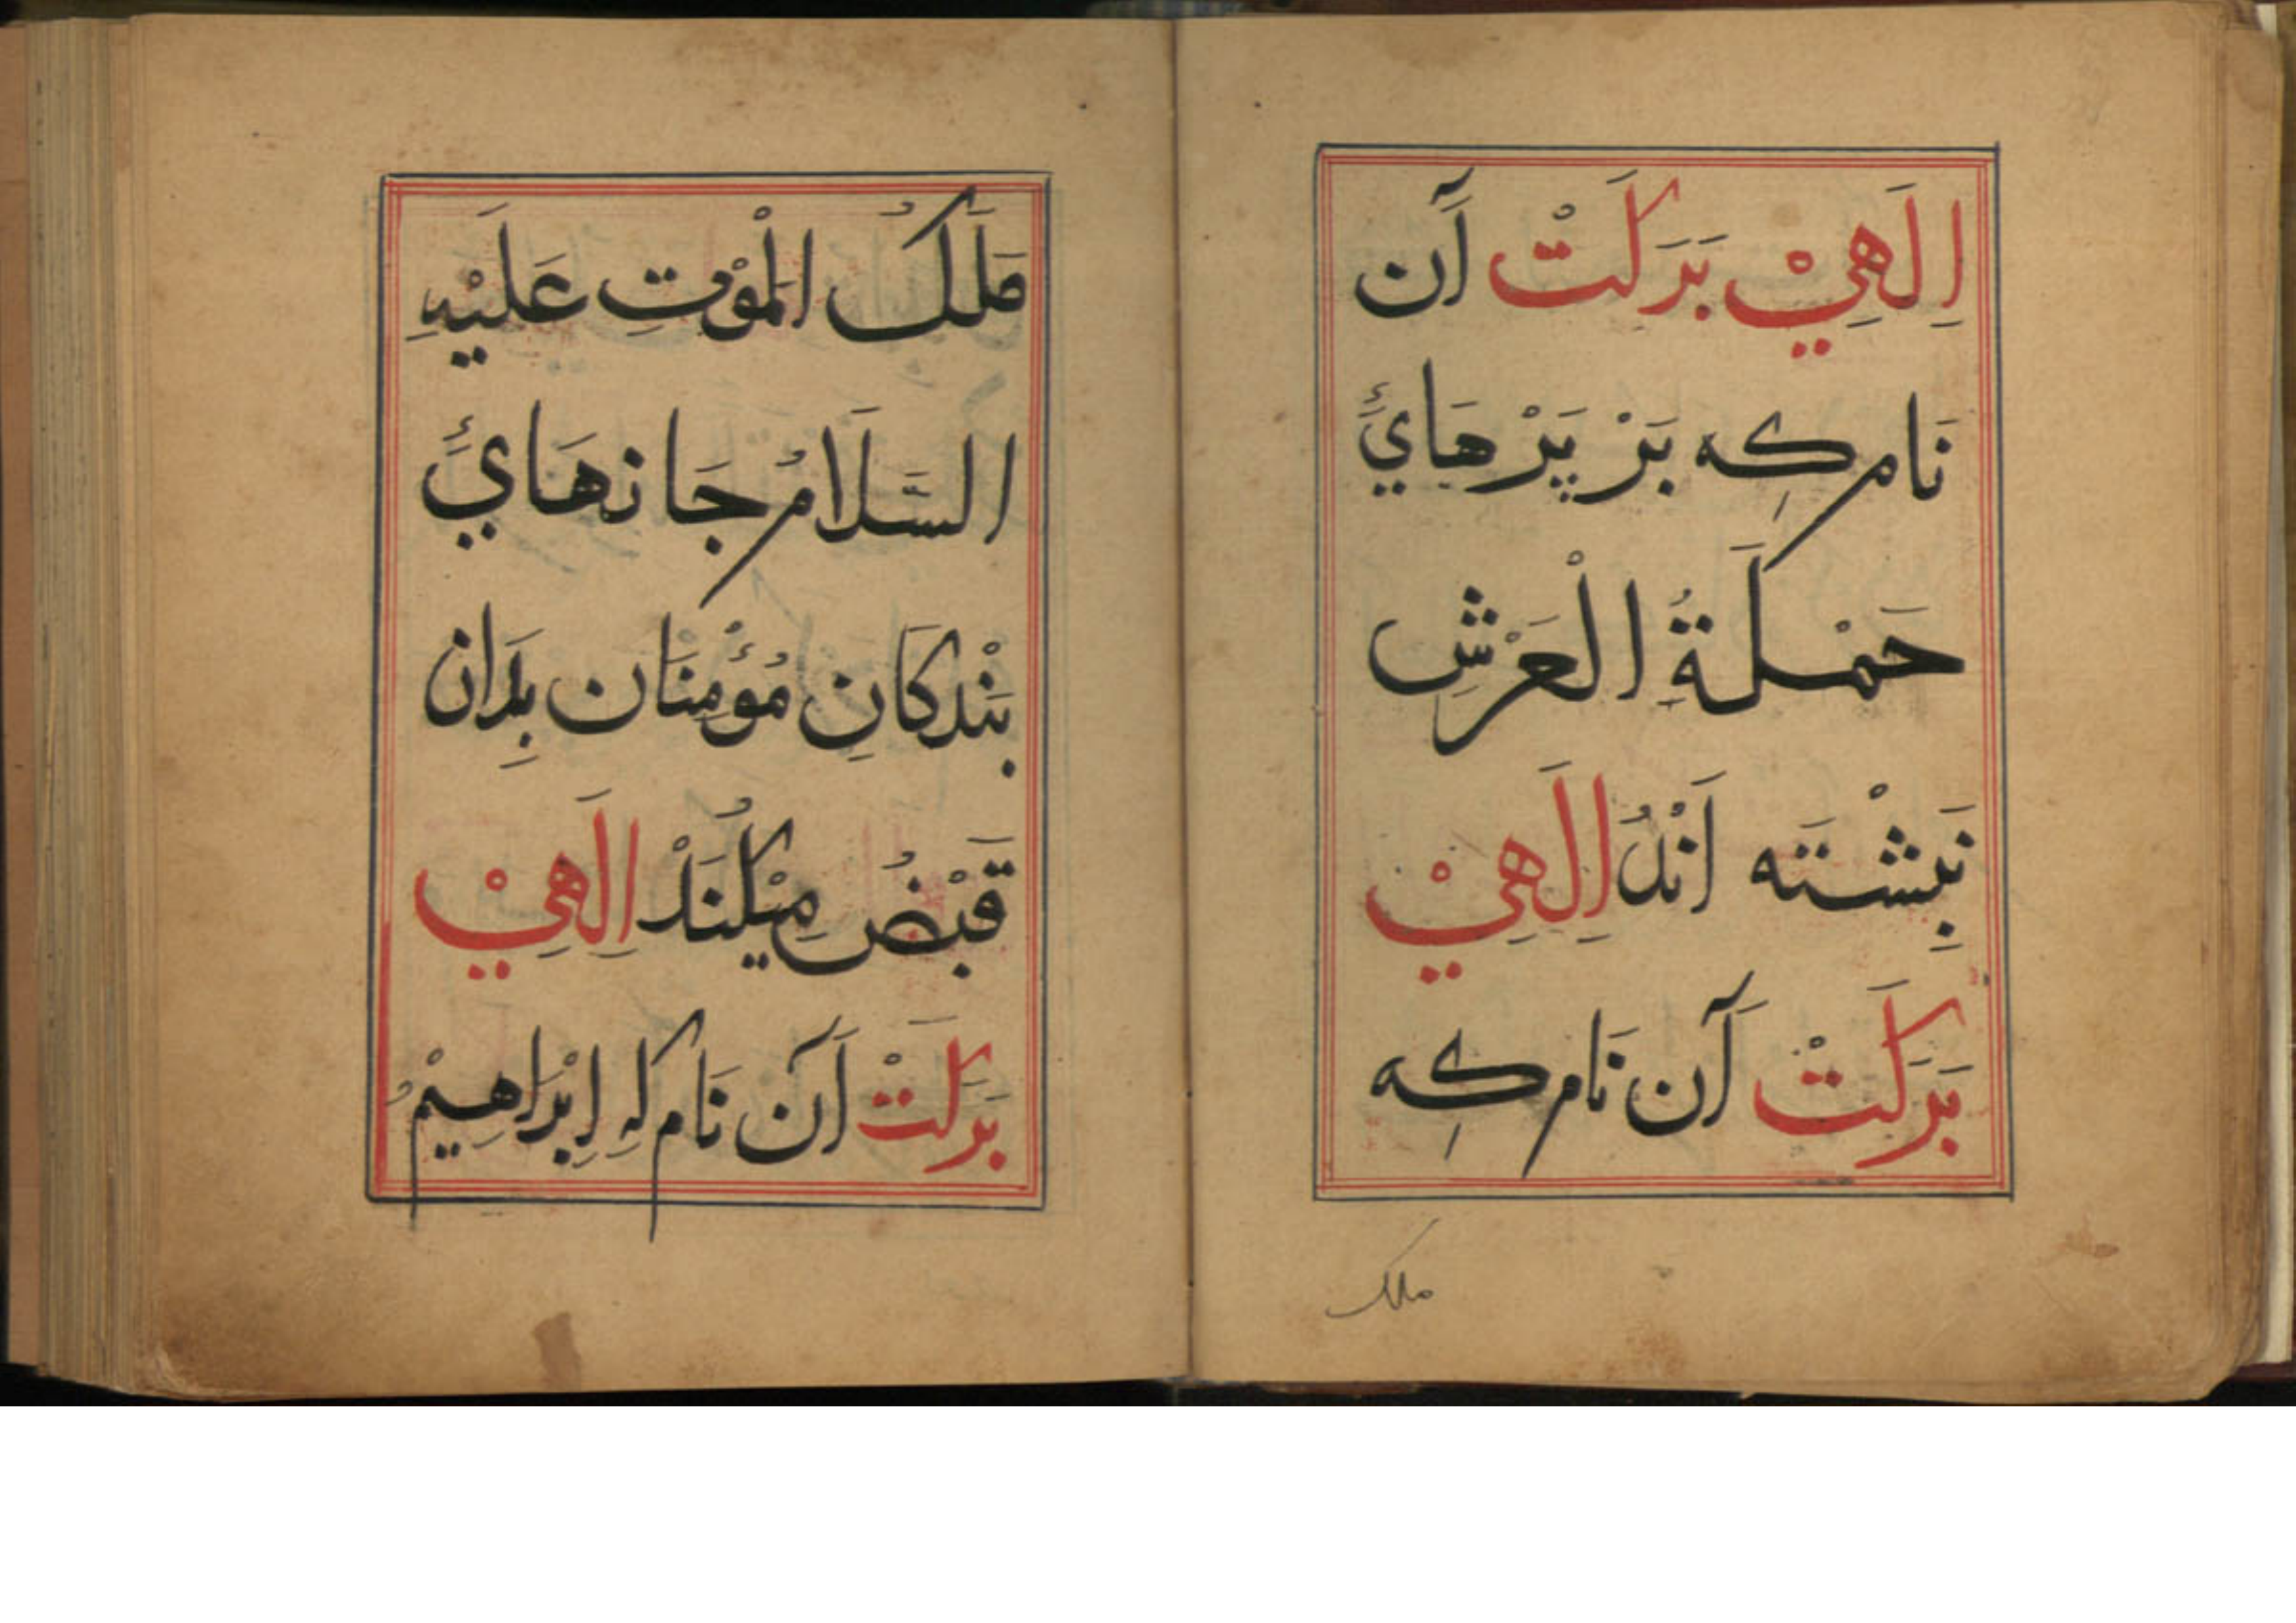 اِلَهِيْ بَرَكَتْ آن
نَام كِه بَرْ پَرْهَائِ
حَمَلَةُ الْعَرْشِ
نَبِشْتَه اَنْدُ اِلَهِيْ
بَرَكَتْ آن نَام كِه
ملك
مَلَكُ الْمَوْتِ عَلَيْهِ
السَّلَامُ جَانهَائِ
بَنْدكَانِ مُؤْمِنَان بِدَان
قَبْضُ مِيْكُنَدْ اِلَهِيْ
بَرَكَتْ آن نَام كِه اِبْرَاهِيْمُ